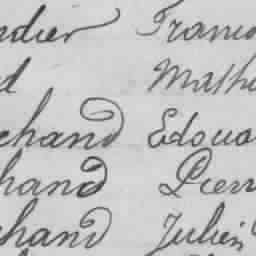 ndier Franc
d Math
chand Edoua
hand Pierr
chand Julien